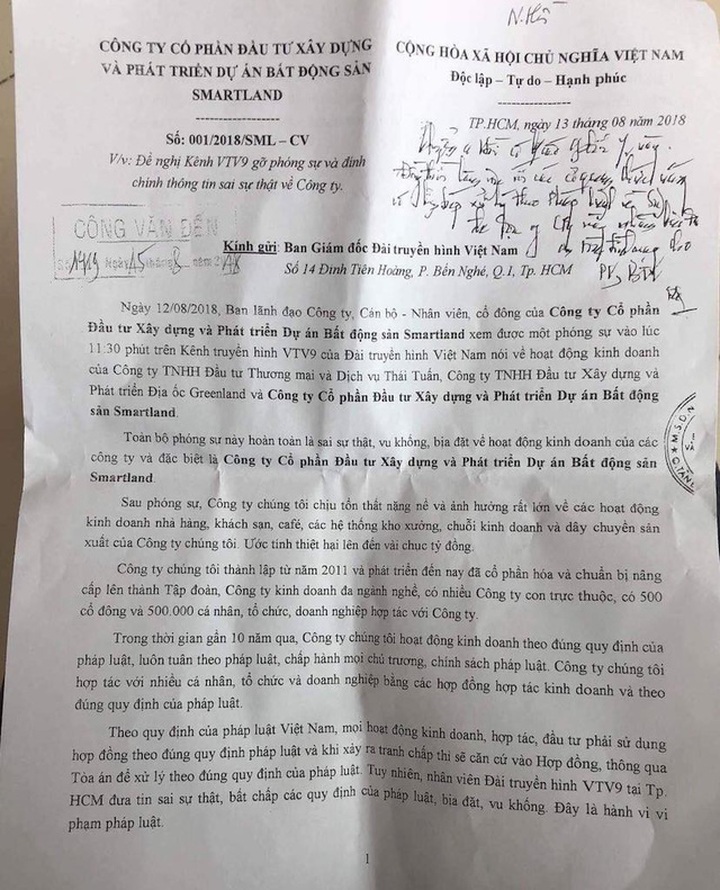 N.Hà
CÔNG TY CỔ PHẦN ĐẦU TƯ XÂY DỰNG
VÀ PHÁT TRIỂN DỰ ÁN BẤT ĐỘNG SẢN
SMARTLAND
CỘNG HÒA XÃ HỘI CHỦ NGHĨA VIỆT NAM
Độc lập – Tự do – Hạnh phúc
Số: 001/2018/SML – CV
V/v: Đề nghị Kênh VTV9 gỡ phóng sự và đính
chính thông tin sai sự thật về Công ty.
TP.HCM, ngày 13 tháng 08 năm 2018
CÔNG VĂN ĐẾN
Số 1419 Ngày 15 tháng 8 năm 2018
Kính gửi: Ban Giám đốc Đài truyền hình Việt Nam
Số 14 Đinh Tiên Hoàng, P. Bến Nghé, Q.1, Tp. HCM
Ngày 12/08/2018, Ban lãnh đạo Công ty, Cán bộ - Nhân viên, cổ đông của Công ty Cổ phần
Đầu tư Xây dựng và Phát triển Dự án Bất động sản Smartland xem được một phóng sự vào lúc
11:30 phút trên Kênh truyền hình VTV9 của Đài truyền hình Việt Nam nói về hoạt động kinh doanh
của Công ty TNHH Đầu tư Thương mại và Dịch vụ Thái Tuấn, Công ty TNHH Đầu tư Xây dựng và
Phát triển Địa ốc Greenland và Công ty Cổ phần Đầu tư Xây dựng và Phát triển Dự án Bất động
sản Smartland.
Toàn bộ phóng sự này hoàn toàn là sai sự thật, vu khống, bịa đặt về hoạt động kinh doanh của các
công ty và đặc biệt là Công ty Cổ phần Đầu tư Xây dựng và Phát triển Dự án Bất động sản
Smartland.
Sau phóng sự, Công ty chúng tôi chịu tổn thất nặng nề và ảnh hưởng rất lớn về các hoạt động
kinh doanh nhà hàng, khách sạn, café, các hệ thống kho xưởng, chuỗi kinh doanh và dây chuyền sản
xuất của Công ty chúng tôi. Ước tính thiệt hại lên đến vài chục tỷ đồng.
Công ty chúng tôi thành lập từ năm 2011 và phát triển đến nay đã cổ phần hóa và chuẩn bị nâng
cấp lên thành Tập đoàn, Công ty kinh doanh đa ngành nghề, có nhiều Công ty con trực thuộc, có 500
cổ đông và 500.000 cá nhân, tổ chức, doanh nghiệp hợp tác với Công ty.
Trong thời gian gần 10 năm qua, Công ty chúng tôi hoạt động kinh doanh theo đúng quy định của
pháp luật, luôn tuân theo pháp luật, chấp hành mọi chủ trương, chính sách pháp luật. Công ty chúng tôi
hợp tác với nhiều cá nhân, tổ chức và doanh nghiệp bằng các hợp đồng hợp tác kinh doanh và theo
đúng quy định của pháp luật.
Theo quy định của pháp luật Việt Nam, mọi hoạt động kinh doanh, hợp tác, đầu tư phải sử dụng
hợp đồng theo đúng quy định pháp luật và khi xảy ra tranh chấp thì sẽ căn cứ vào Hợp đồng, thông qua
Tòa án để xử lý theo đúng quy định của pháp luật. Tuy nhiên, nhân viên Đài truyền hình VTV9 tại Tp.
HCM đưa tin sai sự thật, bất chấp các quy định của pháp luật, bịa đặt, vu khống. Đây là hành vi vi
phạm pháp luật.
1